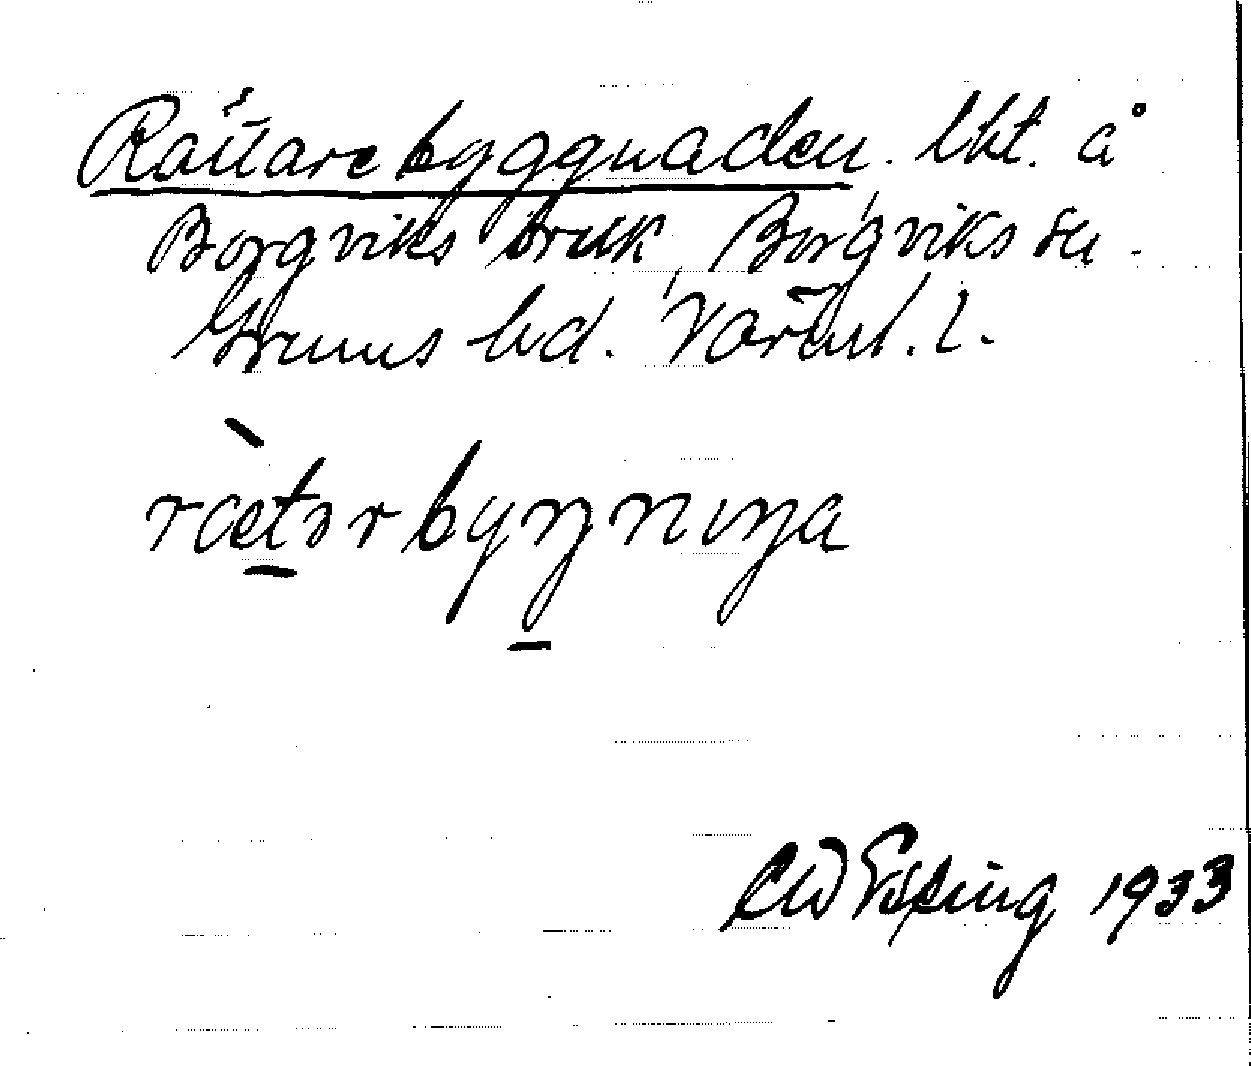 Rättarebyggnaden. lht. å
Borgviks bruk, Borgviks sn.
Grums hd. Värml. l.
rætərbyŋniŋa
CW Esping 1933